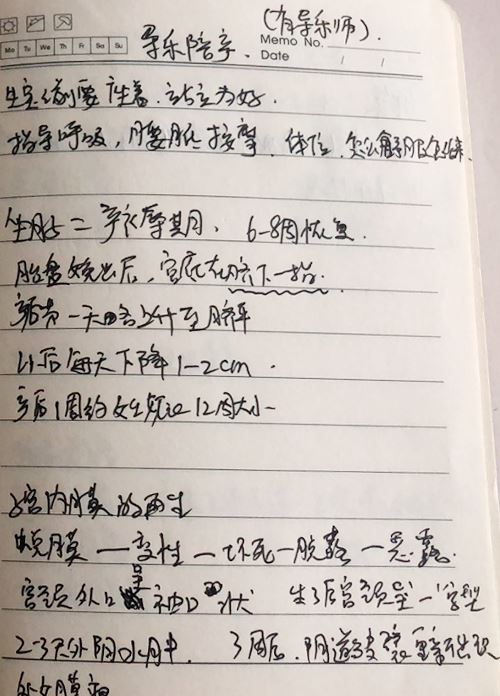 (有导乐师).
Mo Tu We Th Fr Sa Su 导乐陪产. Memo No.
Date / /
生完后别要坐着. 站立为好.
指导呼吸, 腰骶按摩. 体位.
产褥期. 6-8周恢复.
胎盘娩出后, 宫底在脐下一指.
产后一天略上升至脐平
以后每天下降1-2cm.
产后1周约 12周大小
子宫内膜的再生
蜕膜—变性—坏死—脱落—恶露.
宫颈外口呈袖口状 生了后宫颈呈一字型
2-3天外阴水肿. 3周后, 阴道皱襞重新出现
处女膜